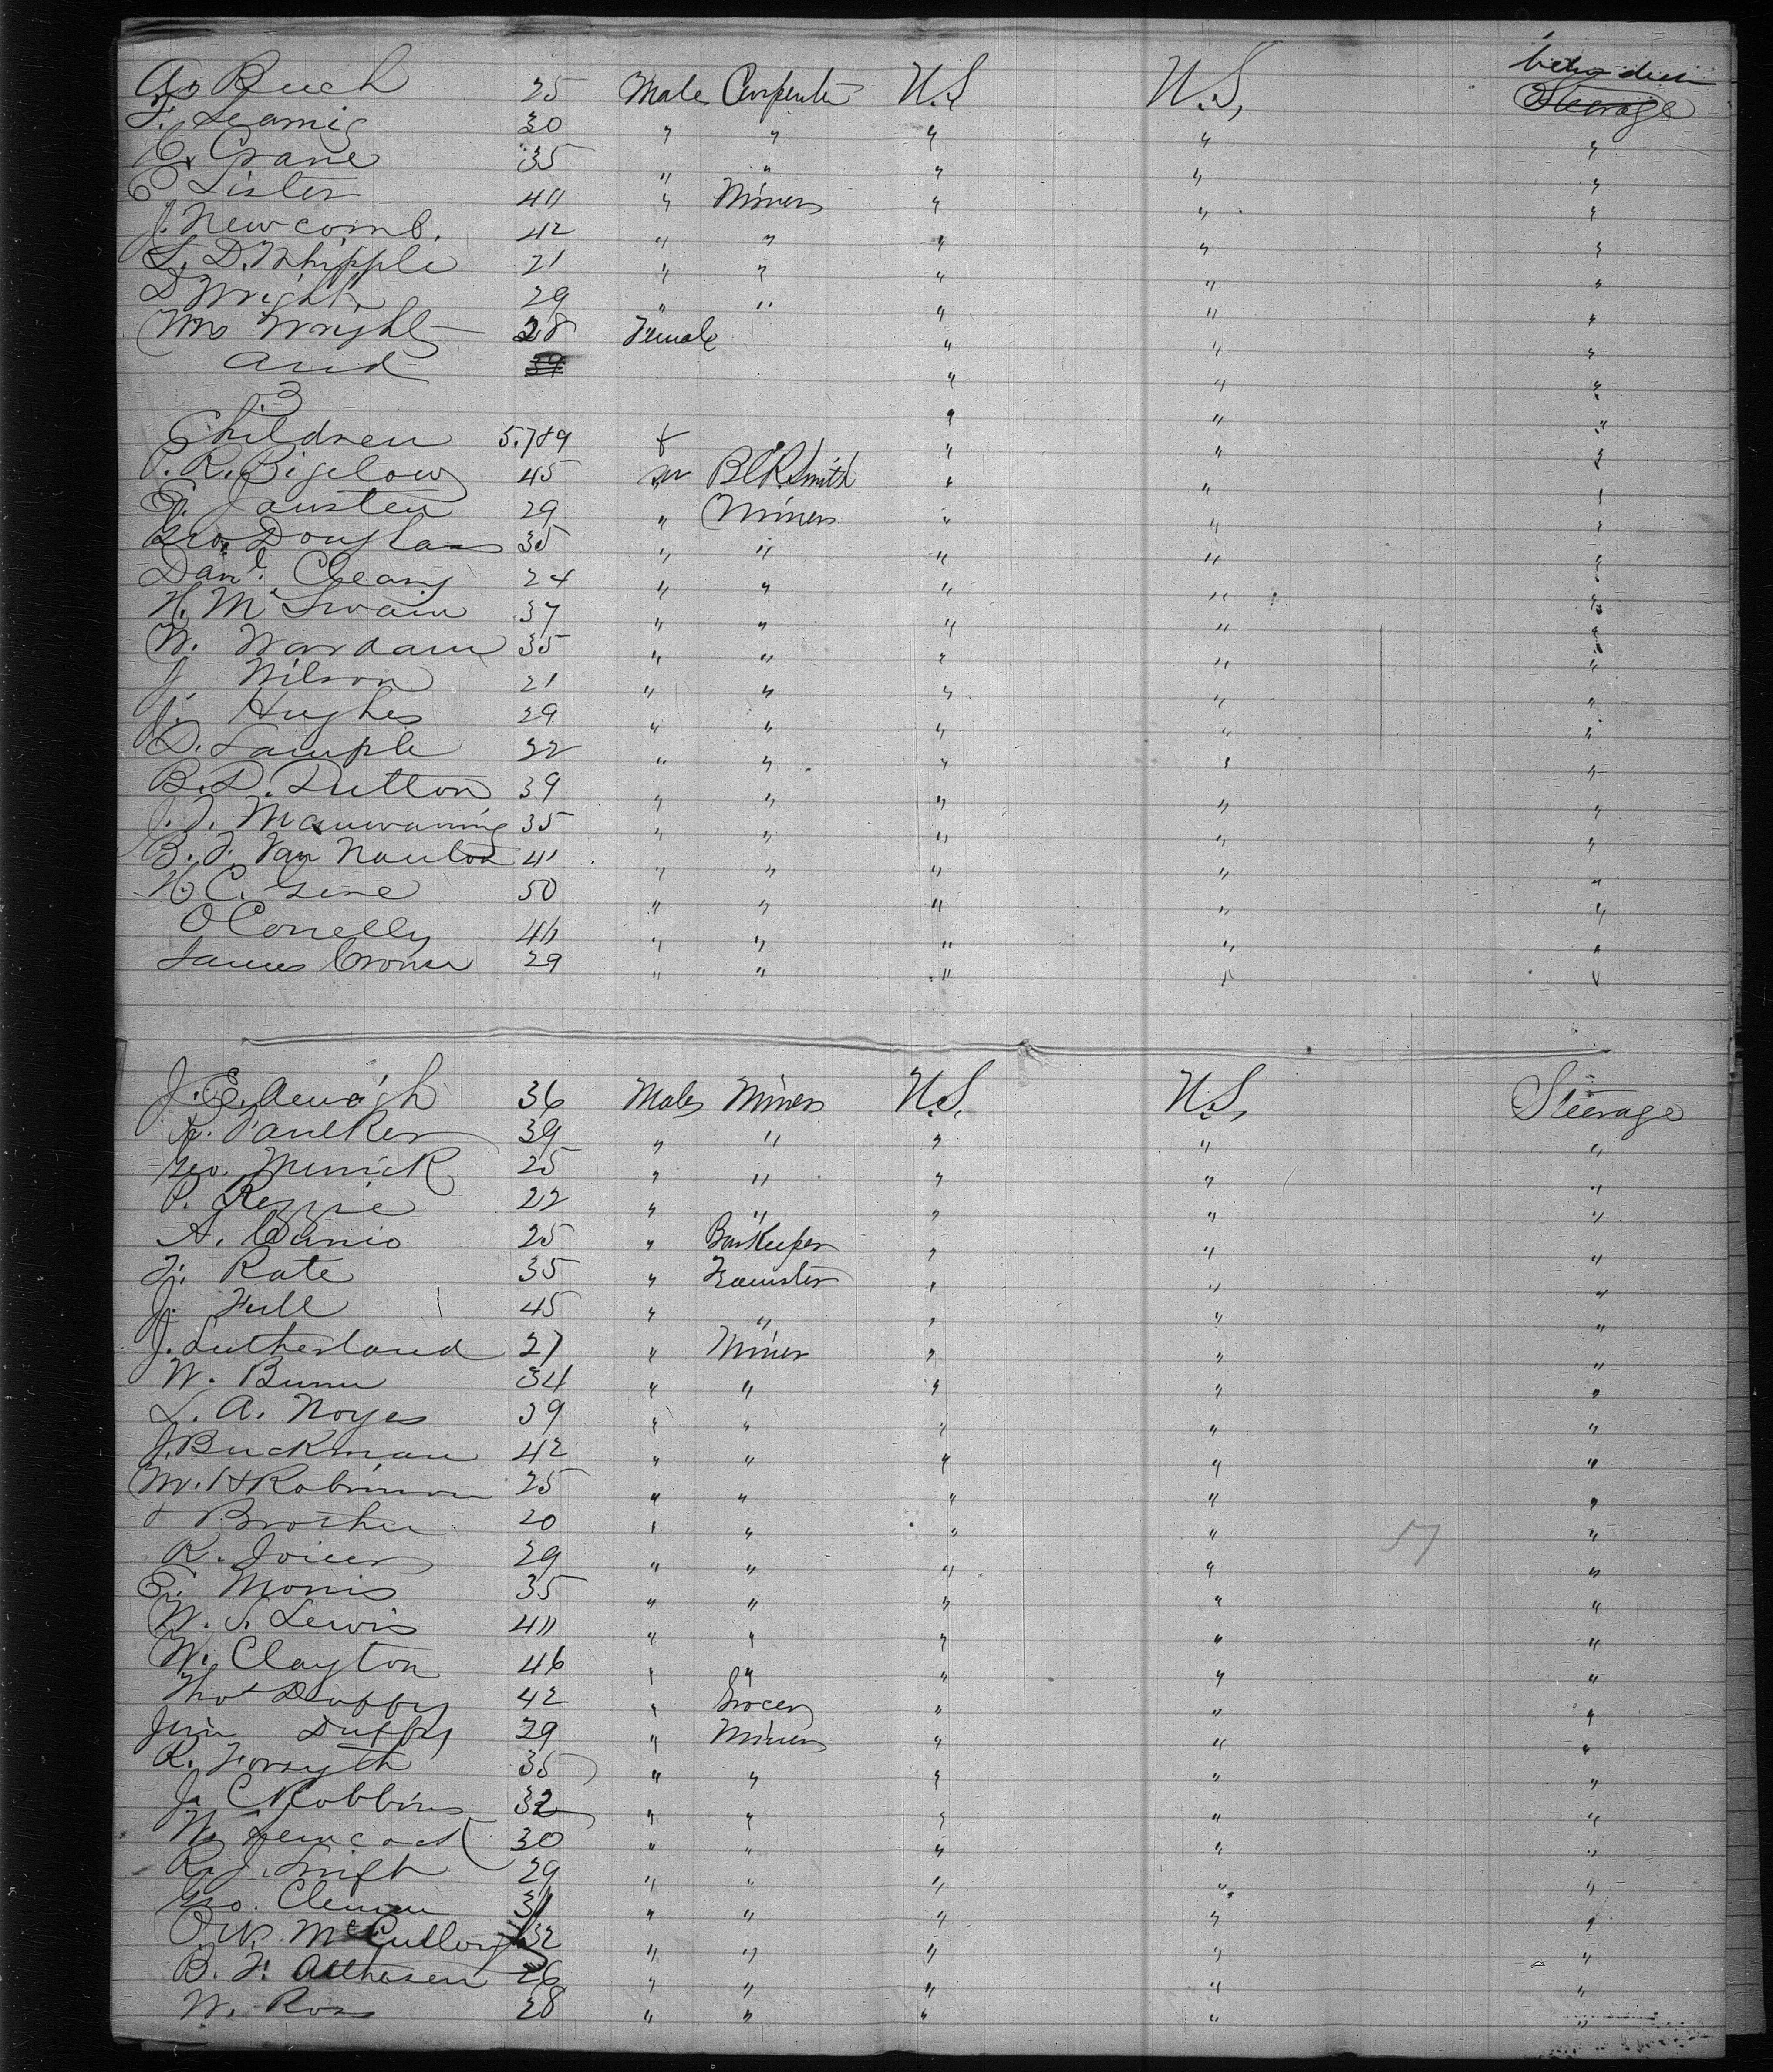 betw deck
A. Buch 25 Male Carpenter U.S U.S, Steerage
F. Leamig 30 " " " " "
C. Crane 35 " " " " "
C Lister 40 " Miners " " "
J. Newcomb. 42 " " " " "
L. D. Whipple 21 " " " " "
D Wright 29 " " " " "
Mrs Wright 28 Female " " "
and 39 " " "
3 " " "
Children 5.7&9 f " " "
P. R. Bigelow 45 m BlkSmith " " "
Jansten 29 " Miners " " "
Geo. Douglass 35 " " " " "
Danl. Cleary 24 " " " " "
H. M Swain 37 " " " " "
W. Wardam 35 " " " " "
J Wilson 21 " " " " "
J. Hughes 29 " " " " "
D. Sample 22 " " " " "
B. D. Dutton 39 " " " " "
J. T. Manwaring 35 " " " " "
B. F. Van Nauton 41 " " " " "
H. C. Gere 50 " " " " "
O Conelly 40 " " " " "
James Crouse 29 " " " " "
J. E. 36 Males Miners U.S. U.S, Steerage
Faulker 39 " " " " "
Geo. Merrick 25 " " " " "
P. 22 " " " " "
A. Canio 25 " BarKeeper " " "
F. Rate 35 " Teamster " " "
J. Full 45 " " " " "
J. Sutherland 27 " Miner " " "
W. Bunn 34 " " " " "
L. A. Noyes 39 " " " " "
J. Buckman 42 " " " " "
W. H Robinson 25 " " " " "
+ Brother 20 " " " " "
R. Joicer 29 " " " " " 57
E. Morris 35 " " " " "
W. S. Lewis 40 " " " " "
W. Clayton 46 " " " " "
Thos Duffy 42 " Grocer " " "
Jim Duffy 29 " Miners " " "
R. Forsyth 35 " " " " "
J. C Robbins 32 " " " " "
W. 30 " " " " "
R. J. Swift 29 " " " " "
Geo. Clemen 31 " " " " "
O. W. McCullough 32 " " " " "
B. F. Althesen 26 " " " " "
W. Ross 28 " " " " "